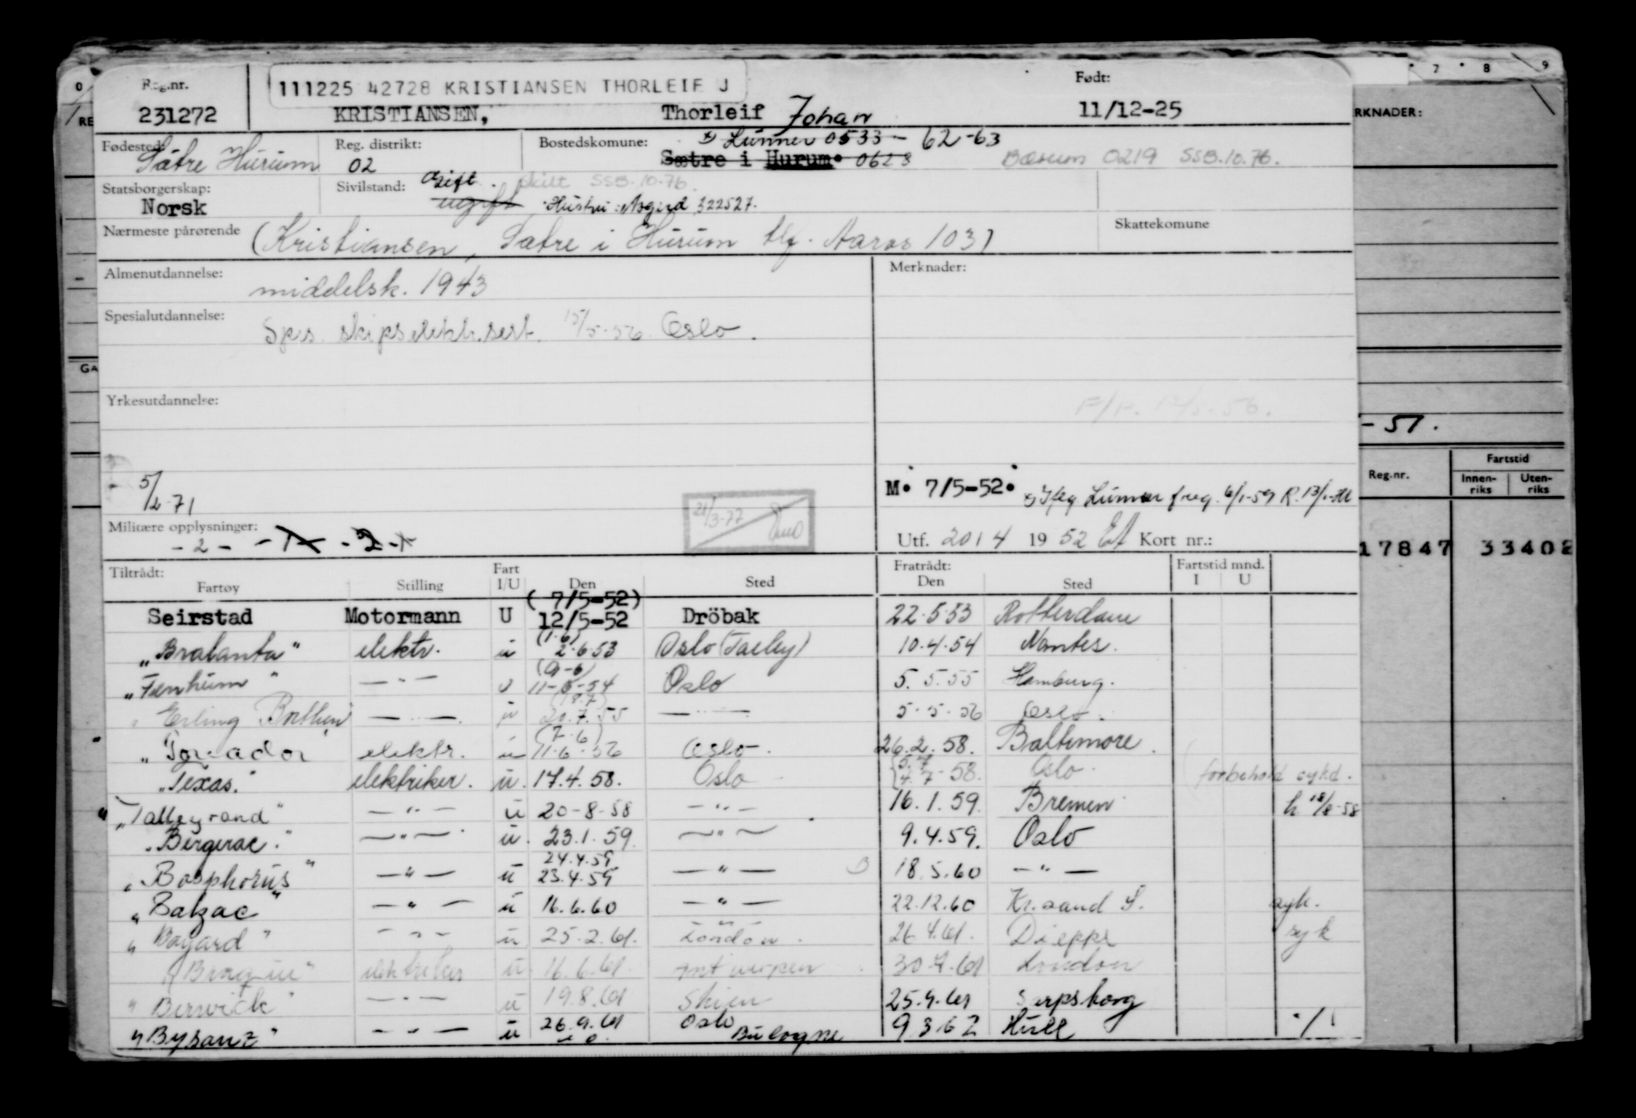 0 7 8 9
Reg.nr. 111225 42728 KRISTIANSEN THORLEIF J Født:
231272 KRISTIANSEN, Thorleif Johan 11/12-25
RKNADER:
Fødested: Sætre Hurum Reg. distrikt: 02 Bostedskomune: Lunner 0533 - 62-63
Sætre i Hurum 0628 Bærum 0219 SSB.10.76.
Statsborgerskap: Norsk Sivilstand: Gift. skilt SSB.10.76
ugift Hustru: Asgerd 322527.
Nærmeste pårørende (Kristiansen, Sætre i Hurum tlf. Aaros 103) Skattekomune
Almenutdannelse: middelsk. 1943 Merknader:
Spesialutdannelse: Sps. skipselektr.sert. 15/5-56. Oslo.
GA
Yrkesutdannelse:
- 51.
5/2-71 M. 7/5-52. Lunner freg. 6/1-59
21/3-77
Militære opplysninger: - 2 -
Utf. 20/4 1952 Kort nr.:
Reg.nr. Fartstid
Innen-riks Uten-riks
17847 33402
Tiltrådt: Fartøy Stilling Fart I/U Den Sted Fratrådt: Den Sted Fartstid mnd. I U
(7/5-52)
Seirstad Motormann U 12/5-52 Dröbak 22.5.53 Rotterdam
(1.6)
"Brabanta" elektr. u 2.6.53 Oslo 10.4.54 Nantes.
(9-6)
"Fernhim" — " — u 11-6-54 Oslo 5.5.55 Hamburg.
(18.7)
"Erling Borthen" — " — u 20.7.55 — " — 5-5-56 Oslo.
(7-6)
"Toreador" elektr. u 11-6-56 Oslo. 26.2.58. Baltimore.
"Texas." elektriker. u. 17.4.58. Oslo 4.7-58. Oslo. forbehold sykd.
"Talleyrand" — " — u 20-8-58 — " — 16.1.59. Bremen h 18/8-58
"Bergerac." — " — u. 23.1.59. — " — 9.4.59. Oslo
24.4.59
"Bosphorus" — " — u 23.4.59 — " — 18.5.60 — " —
"Balzac" — " — u 16.6.60 — " — 22.12.60 Kr.sand S. syk.
"Bayard" — " — u 25.2.61. London. 26.4.61. Dieppe syk
"Brague" elektriker u 16.6.61. Antwerpen 30.7.61 London
"Berwick" — " — u 19.8.61 Skien 25.9.61 Sarpsborg
"Byzanz" — " — u 26.9.61 Oslo 9.3.62 Hull
Bulogne